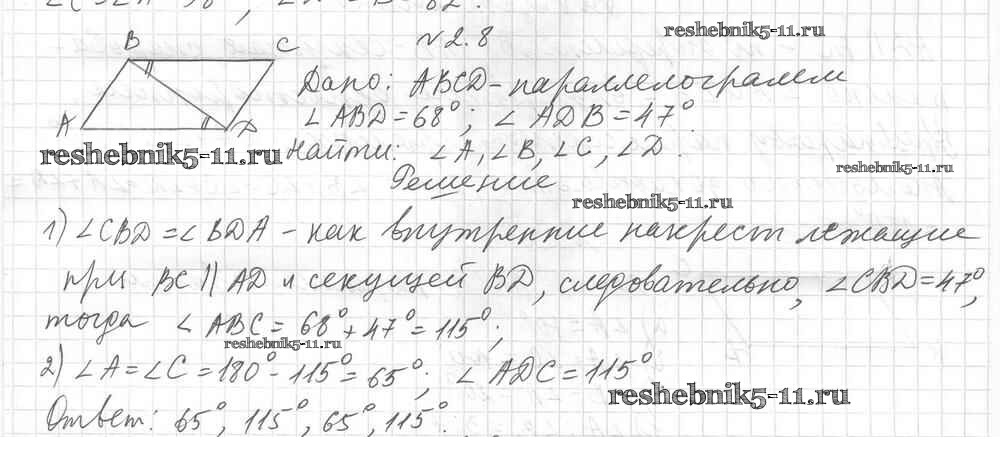 ∠C=∠A=98°, ∠A=∠B=82°.
№2.8
reshebnik5-11.ru
B
C
A
D
Дано: ABCD-параллелограмм
∠ABD=68°; ∠ADB=47°.
reshebnik5-11.ru
Найти: ∠A, ∠B, ∠C, ∠D.
reshebnik5-11.ru
Решение
reshebnik5-11.ru
1) ∠CBD=∠BDA - как внутренние накрест лежащие
при BC || AD и секущей BD, следовательно, ∠CBD=47°,
тогда ∠ABC=68°+47°=115°;
reshebnik5-11.ru
2) ∠A=∠C=180°-115°=65°; ∠ADC=115°
reshebnik5-11.ru
Ответ: 65°, 115°, 65°, 115°.